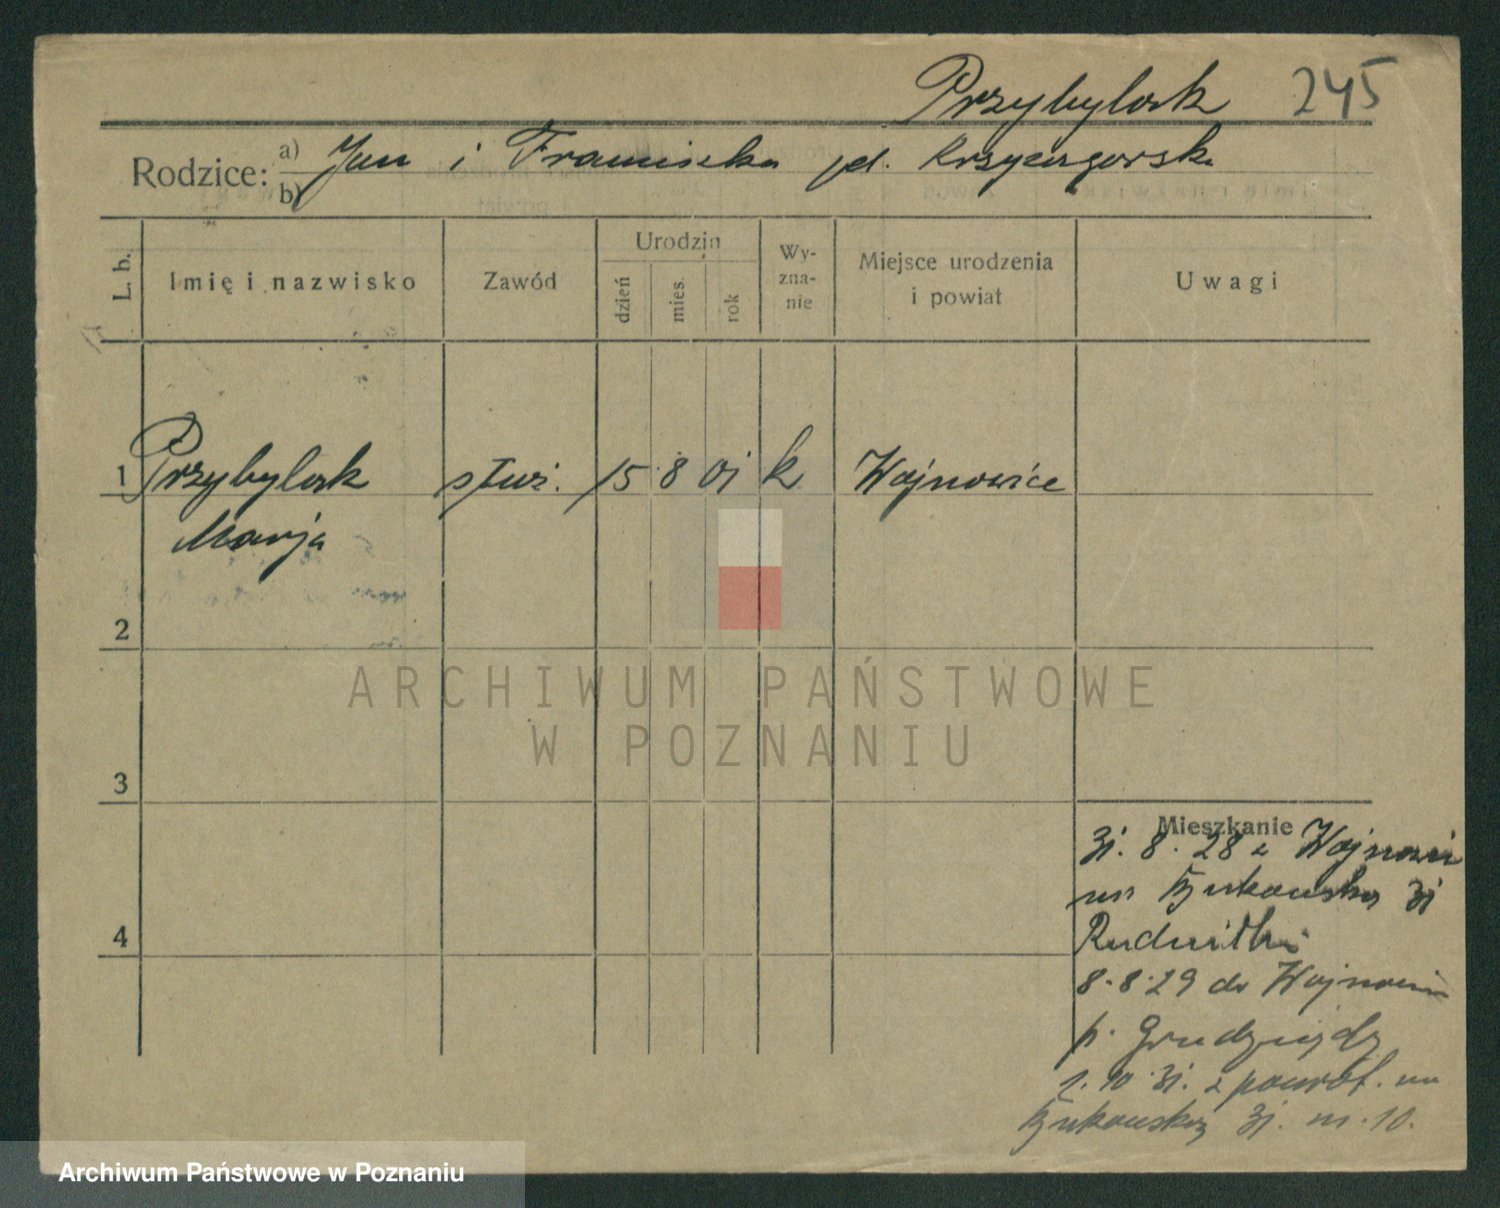 Przybylak 245
Rodzice: a) Jan i Franciszka
b)
L. b. Imię i nazwisko Zawód Urodzin dzień mies. rok Wy-zna-nie Miejsce urodzenia i powiat Uwagi
1 Przybylak służ. 15 8 01 k Wojnowice
Marja
2
3
4
Mieszkanie
31. 8. 28 z Wojnowic
na Bukowska 31
8.8.29 do Wojnowic
p. Grudziądz
1. 10. 31. z powrot. na
Bukowską 31. m. 10.
ARCHIWUM PAŃSTWOWE
W POZNANIU
Archiwum Państwowe w Poznaniu